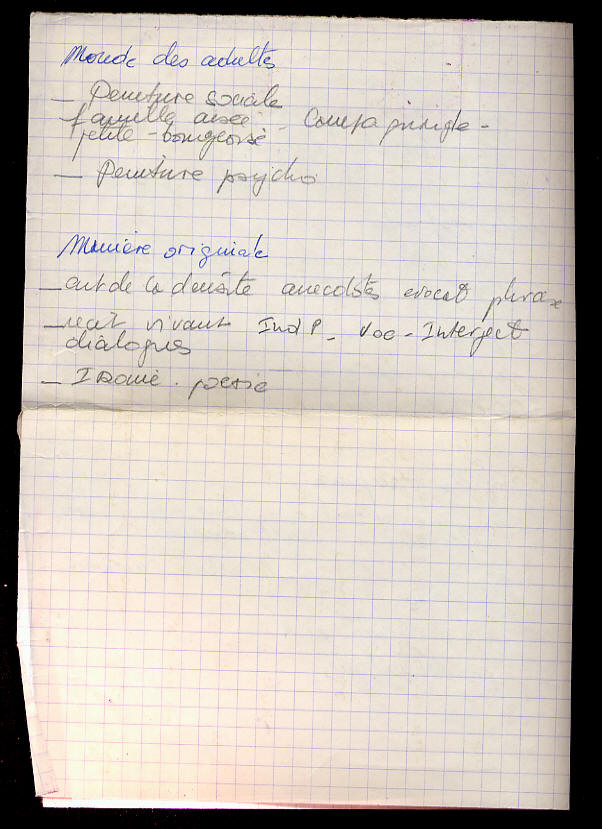 Monde des adultes
— Peinture sociale
famille aisée - Compa
petite-bourgeoisie
— Peinture psycho
Manière originale
— art de la densité anecdotes evocat phrase
— recit vivant Ind P - Voc - Interject
dialogues
— Ironie . poesie